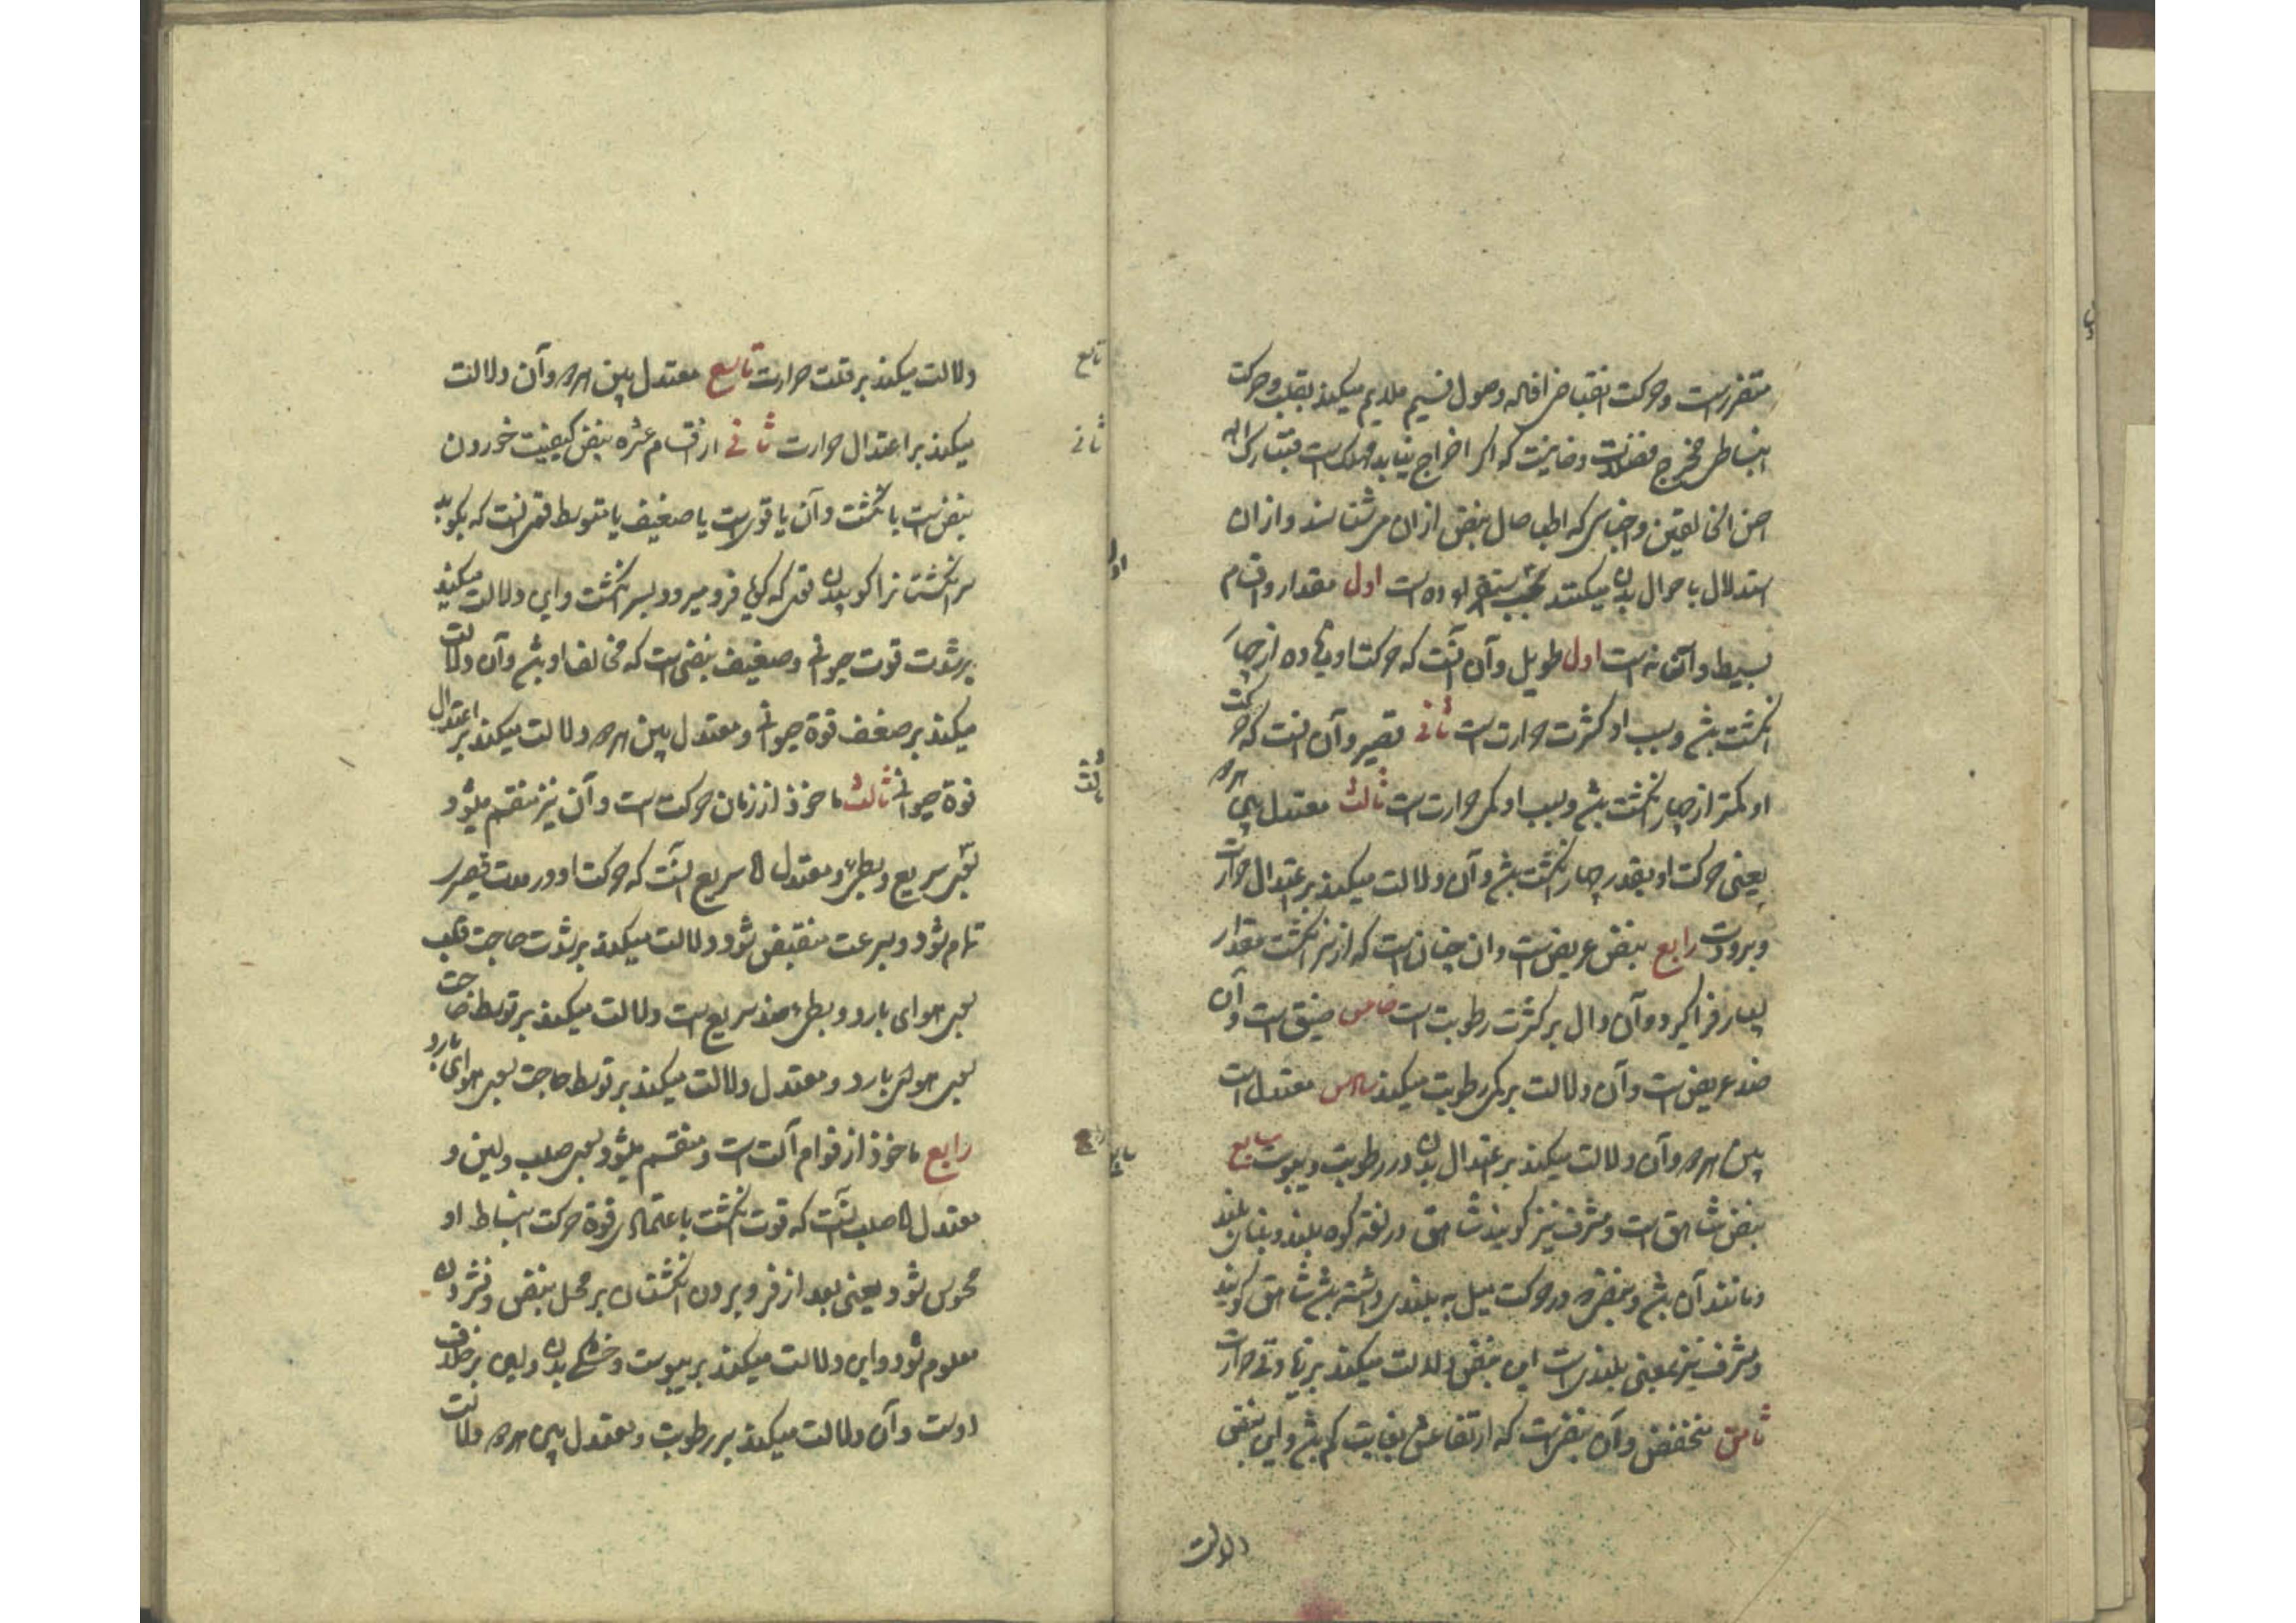 متضررست و حرکت انقباض افاله وصول نسیم ملایم میکند بقلب و حرکت
انبساطی مخرج فضلات دخانیت که اگر اخراج نیابد مهلک است فتبارک الله
احسن الخالقین و اجناسی که اطبا حال نبض ازان می شناسند و ازان
استدلال باحوال بدن میکنند بحسب استقرا ده است اول مقدار و اقسام
بسیط و آن نه است اول طویل و آن آنست که حرکت او زیاده از چهار
انکشت باشد و سبب او کثرت حرارت است ثانی قصیر و آن انست که حرکت
او کمتر از چهار انکشت باشد و سبب او کمی حرارت است ثالث معتدل بین هر دو
یعنی حرکت او بقدر چهار انکشت باشد و آن دلالت میکند بر اعتدال حرارت
و برودت رابع نبض عریض است و ان چنان است که از سر انکشت مقدار
بسیار فرا کیرد و آن دال بر کثرت رطوبت است خامس ضیق است و آن
ضد عریض است و آن دلالت بر کمی رطوبت میکند سادس معتدل است
بین هر دو و آن دلالت میکند بر اعتدال بدن در رطوبت و یبوست سابع
نبض شاهق است و مشرف نیز کویند شاهق در لغة کوه بلند و بنای بلند
و مانند آن باشد و نبض که در حرکت میل به بلندی داشته باشد شاهق کویند
و مشرف نیز بمعنی بلندی است این نبض دلالت میکند بر زیادتی حرارت
ثامن منخفض و آن نبضی است که ارتفاعش بغایت کم باشد و این نبض
دلالت
دلالت میکند بر قلت حرارت تاسع معتدل بین هر دو و آن دلالت
میکند بر اعتدال حرارت ثانی از اقسام عشره نبض کیفیت خوردن
نبض است بانکشت و آن یا قوی است یا ضعیف یا متوسط قوی انست که بکوبد
سر انکشت را کوبیدن قوی که کویا فرو میرود بسر انکشت و این دلالت میکند
بر شدت قوت حیوانی و ضعیف نبضی است که مخالف او باشد و آن دلالت
میکند بر ضعف قوة حیوانی و معتدل بین هر دو دلالت میکند بر اعتدال
قوة حیوانی ثالث ماخوذ از زمان حرکت است و آن نیز منقسم میشود
بسریع و بطیء و معتدل اما سریع آنست که حرکت او در مدت قصیر
تمام شود و بسرعت منقبض شود و دلالت میکند بر شدت حاجت قلب
بسوی هوای بارد و بطیء ضد سریع است دلالت میکند بر توسط حاجت
بسوی هوای بارد و معتدل دلالت میکند بر توسط حاجت بسوی هوای بارد
رابع ماخوذ از قوام آلت است و منقسم میشود بسوی صلب و لین و
معتدل اما صلب آنست که قوت انکشت باعتماد بر قوة حرکت انبساط او
محسوس شود یعنی بعد از فرو بردن انکشتان بر محل نبض و فشردن
معلوم شود و این دلالت میکند بر یبوست و خشکی بدن و لین بر خلاف
اوست و آن دلالت میکند بر رطوبت و معتدل بین هر دو دلالت
تاسع
ثانی
اول
ثالث
رابع